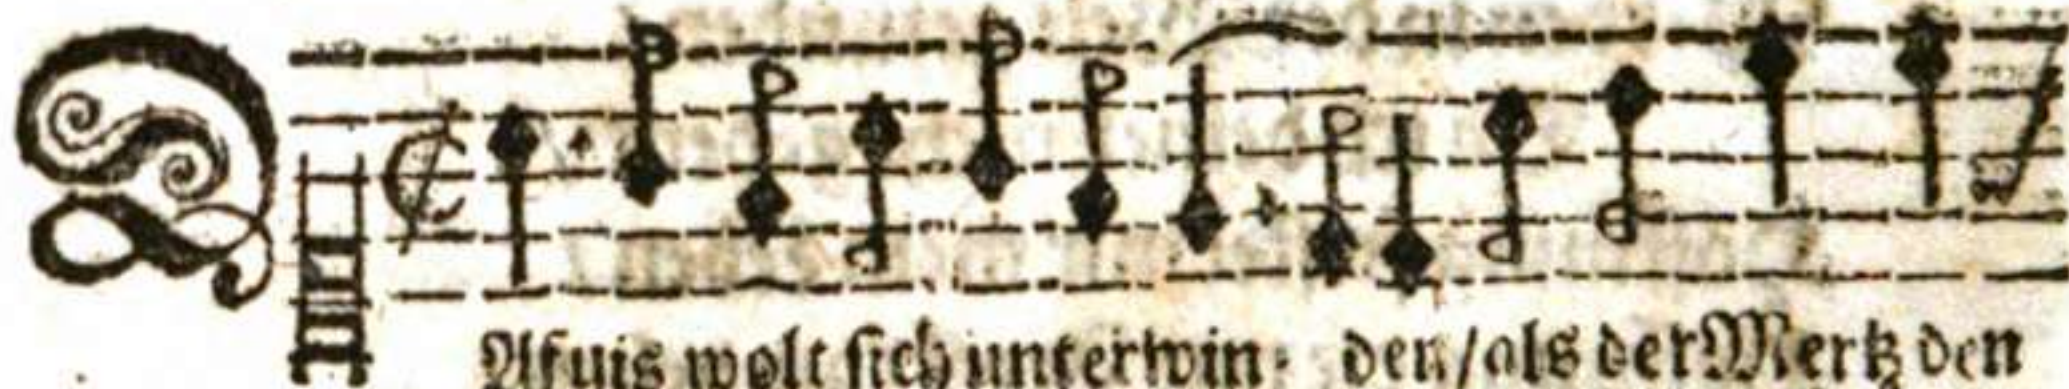 DAfnis wolt sich unterwin- den/als der Mertz den